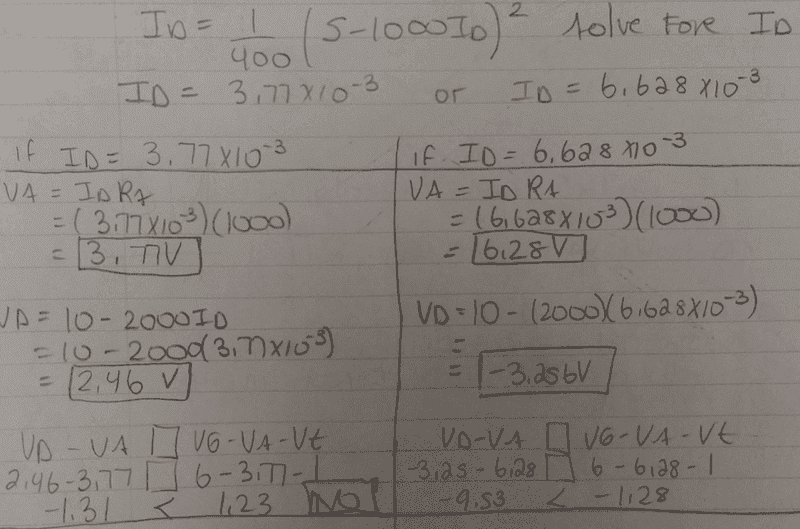 ID = 1/400 (5-1000ID)² solve Fore ID
ID = 3.77x10⁻³ or ID = 6.628 x10⁻³
if ID = 3.77x10⁻³
VA = ID RA
= (3.77x10⁻³)(1000)
= 3.77V
VD = 10 - 2000ID
= 10 - 2000(3.77x10⁻³)
= 2.46 V
VD - VA □ VG-VA-Vt
2.46-3.77 □ 6-3.77-1
-1.31 < 1.23 NO
if ID = 6.628 x10⁻³
VA = ID RA
= (6.628x10⁻³)(1000)
= 6.28V
VD = 10 - (2000)(6.628x10⁻³)
=
= -3.256V
VD-VA □ VG-VA-Vt
-3.25-6.28 □ 6-6.28-1
-9.53 < -1.28